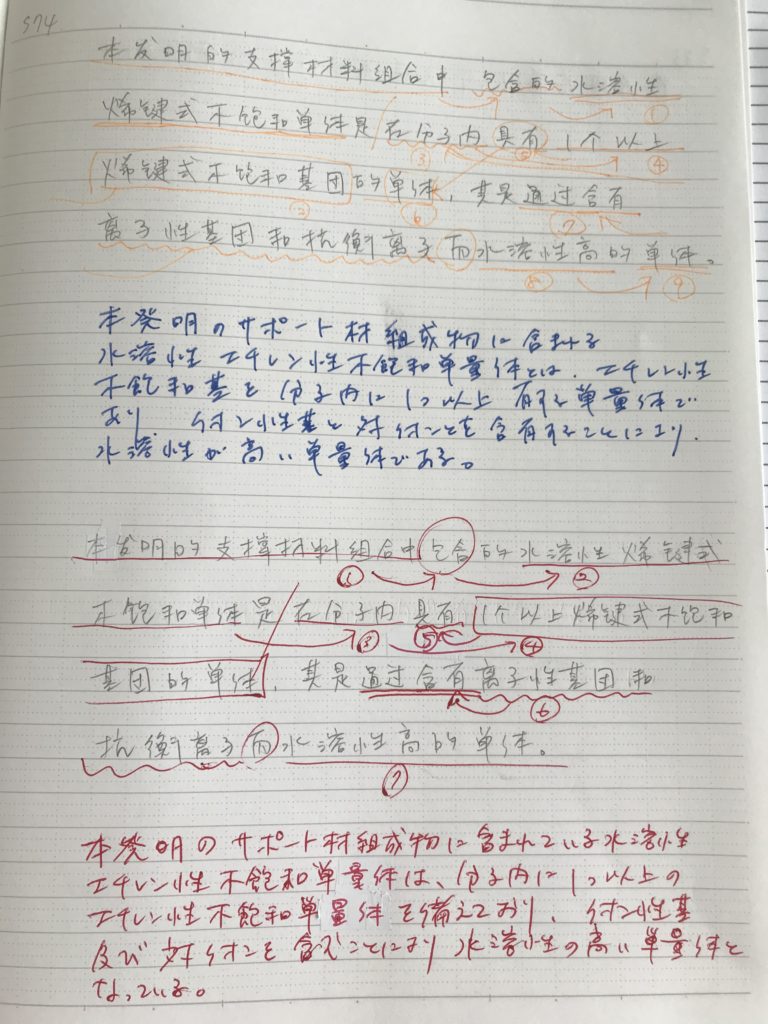 574
本发明的支撑材料組合中 包含的水溶性
①
烯键式不饱和单体是在分子内具有1个以上
③ ⑤ ④
烯键式不饱和基团的单体，其是通过含有
③ ⑥ ⑦
离子性基团和抗衡离子而水溶性高的单体。
⑧ ⑨
本発明のサポート材組成物に含まれる
水溶性エチレン性不飽和単量体とは、エチレン性
不飽和基を分子内に1つ以上有する単量体で
あり、イオン性基と対イオンとを含有することにより、
水溶性が高い単量体である。
本发明的支撑材料組合中包含的水溶性烯键式
① ②
不饱和单体是在分子内具有1个以上烯键式不饱和
③ ⑤ ④
基团的单体，其是通过含有离子性基团和
⑥
抗衡离子而水溶性高的单体。
⑦
本発明のサポート材組成物に含まれている水溶性
エチレン性不飽和単量体は、分子内に1つ以上の
エチレン性不飽和単量体を備えており、イオン性基
及び対イオンを含むことにより水溶性の高い単量体と
なっている。